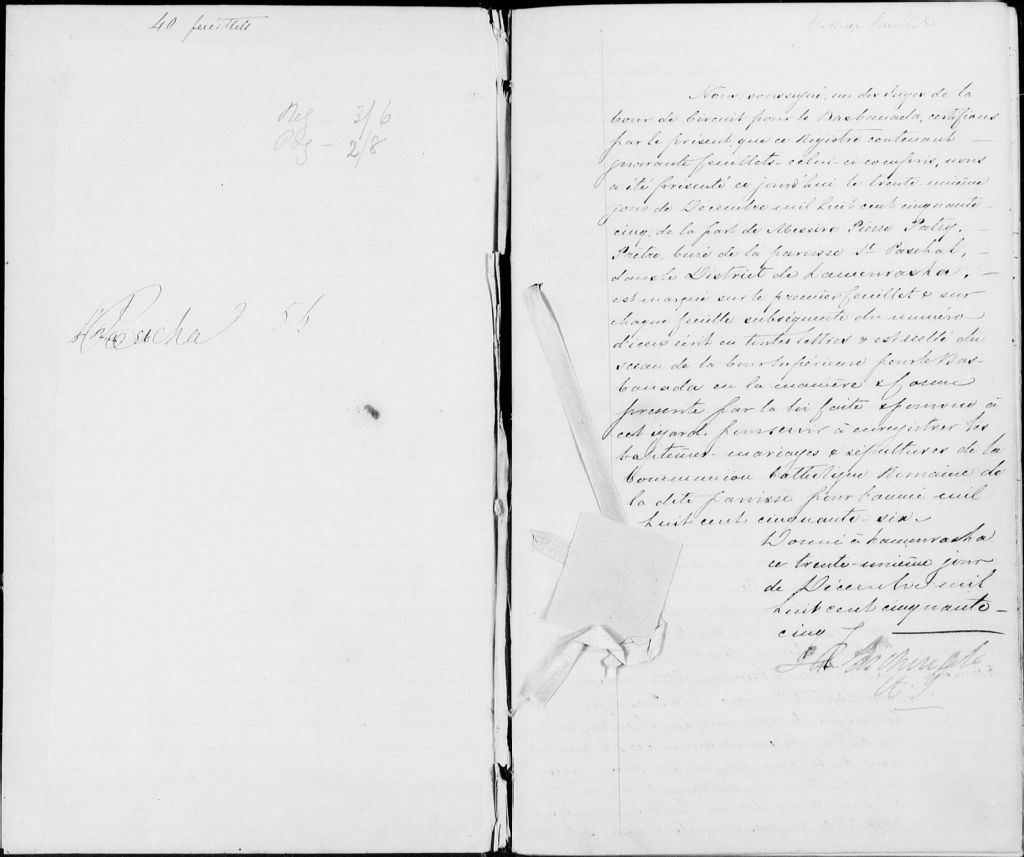 40 feuillets
Reg - 3/6
Pdg - 2/8
56
Premier feuillet
Nous, soussigné, un des Juges de la
Cour de Circuit pour le Bas Canada, certifions
par le présent, que ce Registre contenant
quarante feuillets celui-ci compris, nous
a été présenté ce jourd'hui le trente-unième
jour de Décembre mil huit cent cinquante-
cinq, de la part de Messire Pierre Patry,
Prêtre, Curé de la paroisse St. Paschal,
dans le District de Kamouraska,
est marqué sur le premier feuillet & sur
chaque feuille subséquente du numéro
d'iceux écrit en toutes lettres & est scellé du
sceau de la Cour Supérieure pour le Bas-
Canada en la manière & forme
prescrite par la loi faite & pourvue à
cet égard, pour servir à enregistrer les
baptêmes - mariages & sépultures de la
Communion Catholique Romaine de
la dite paroisse pour l'année mil
huit cent cinquante-six.
Donné à Kamouraska
ce trente-unième jour
de Décembre mil
huit cent cinquante-
cinq